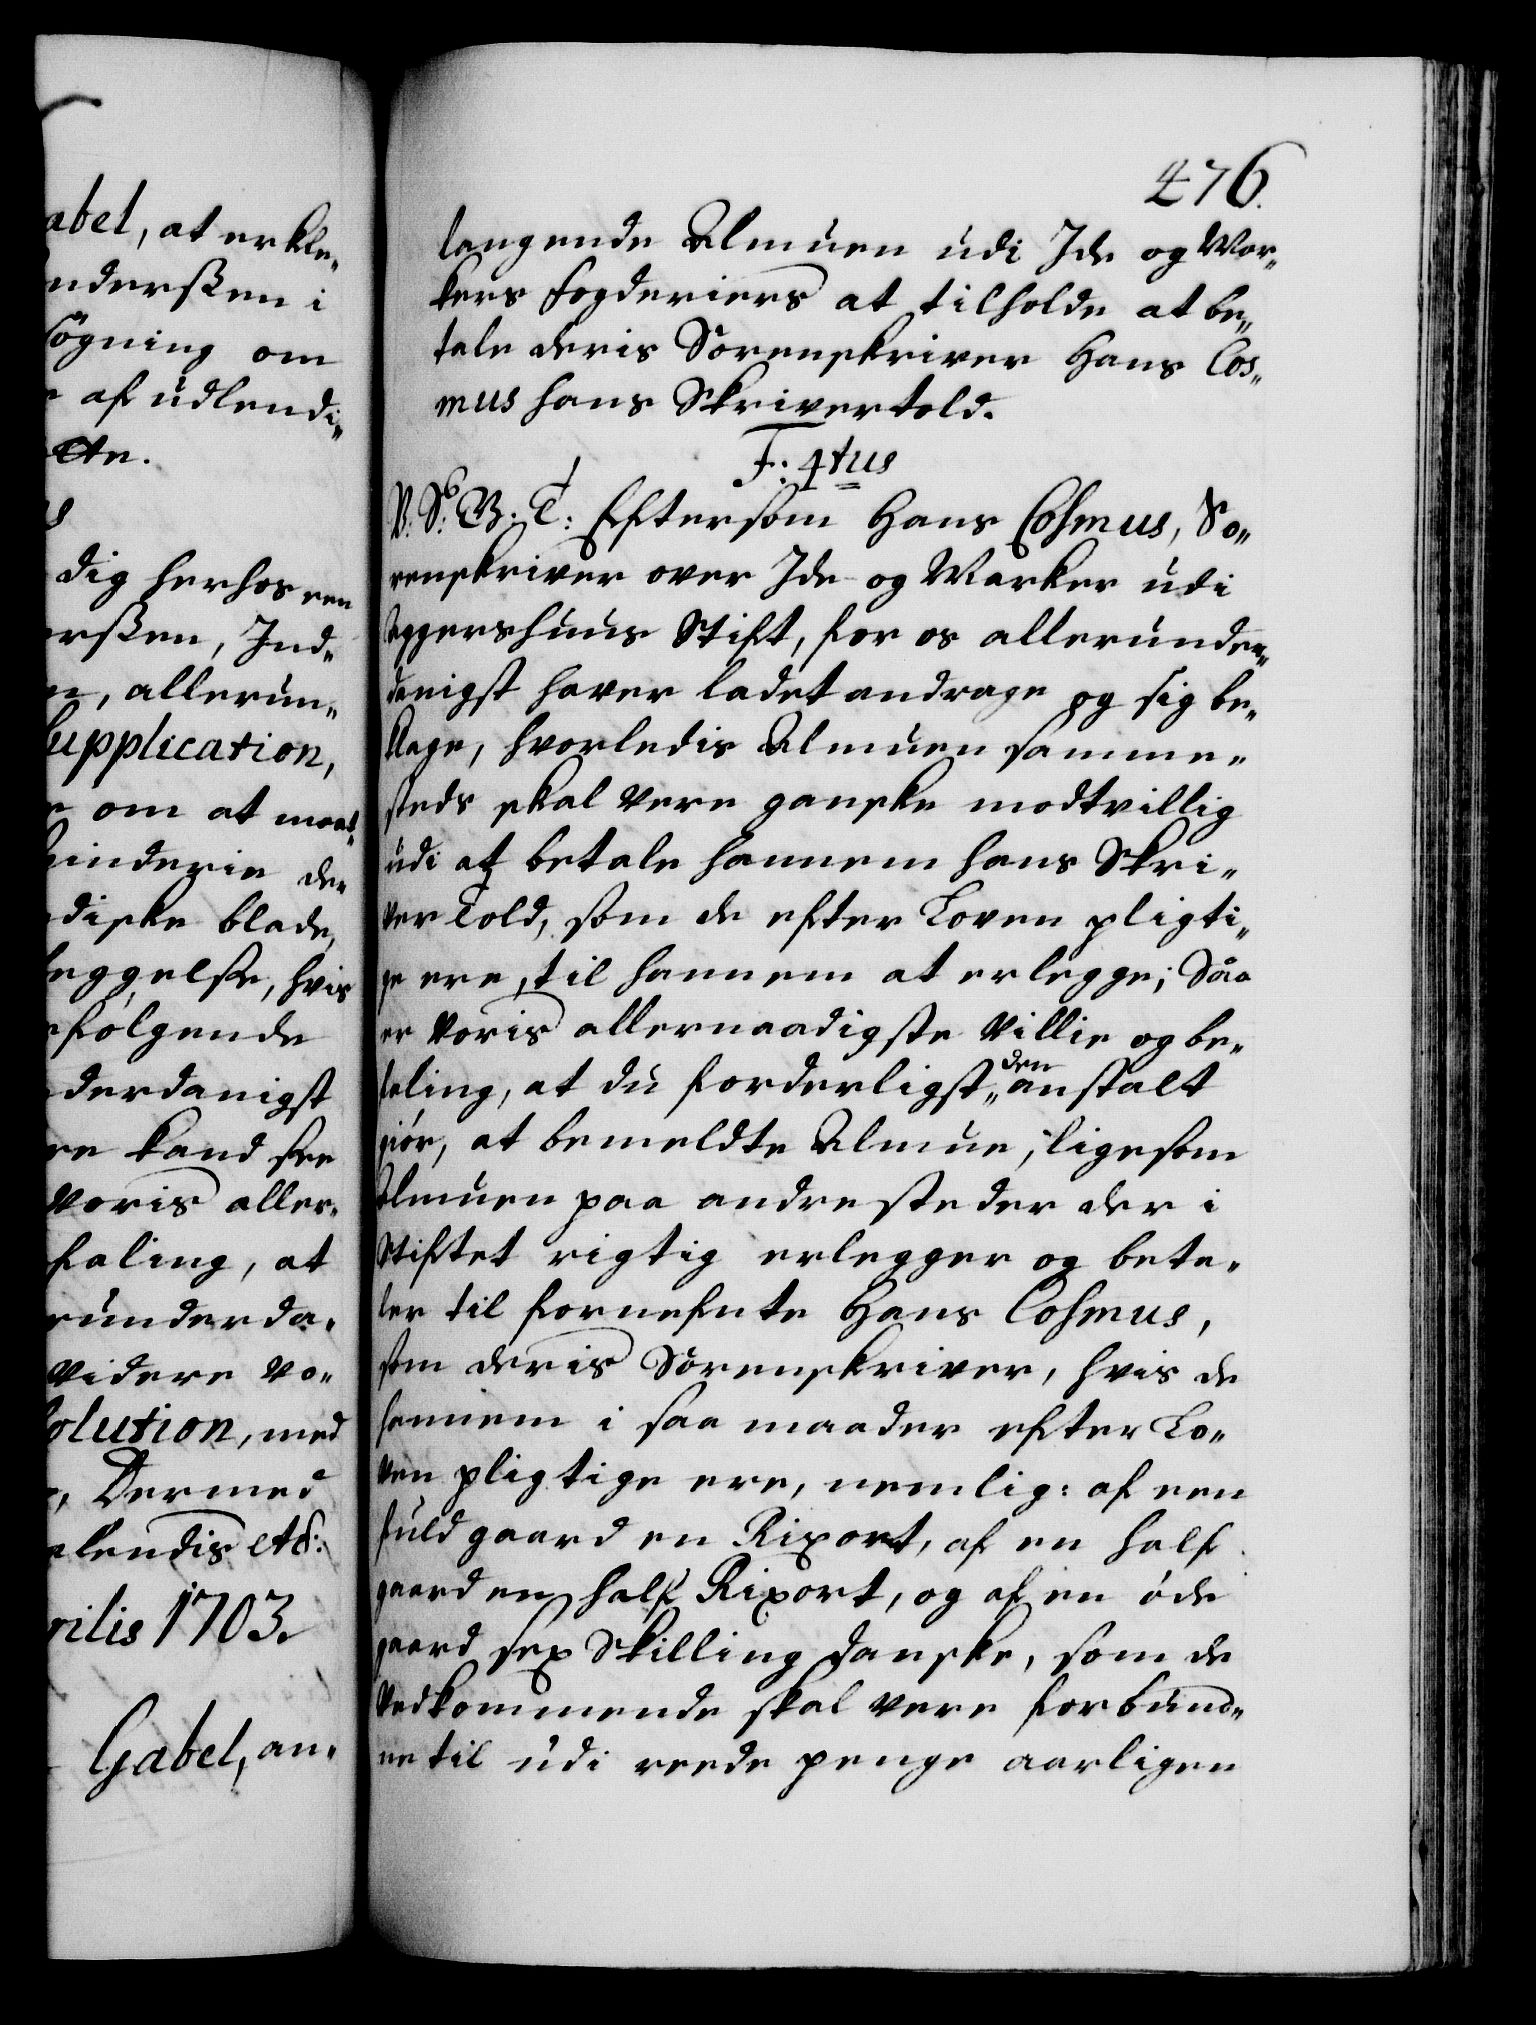 abel, at erkle„
nderssken i
søgning om
e af udlendi„
ette.
dig herhos een
erssken, Ind„
en, allerun„
Supplication,
e om at maat„
diske blade,
leggelse, hvis
efølgende
derdanigst
re kand see
Voris aller„
faling, at
erunderda„
videre vo„
Solution, med
Dermed
elendis etc:
rilis 1703.
Gabel, an„
476.
langende Almuen udi Ide og Mar„
kers fogderiers at tilholde at be„
tale deris Sorenskriver Hans Cos„
mus hans Skrivertold.
F: 4tus
V. S: G. T: Eftersom Hans Cosmus, So„
renskriver over Ide og Marker udi
Aggershuus Stift, for os allerunder„
danigst haver ladet andrage og sig be„
klage, hvorledis Almuen samme„
steds skal være gandske modtvillig
udi at betale hannem hans Skri„
ver Told, som de efter Loven pligti„
ge ere, til hannem at erlegge; Saa
er Voris allernaadigste Villie og be„
faling, at du forderligst„ den anstalt
giör, at bemeldte Almue, ligesom
Almuen paa andre steder der i
Stiftet rigtig erlegger og beta„
ler til fornefnte Hans Cosmus,
som deris Sorenskriver, hvis de
hannem i saa maader efter Lo„
ven pligtige ere, nemlig: af een
fuld gaard en Rixort, af en half
gaard en half Rixort, og af en øde
gaard sex Skilling danske, som de
Vedkommende skal være forbund„
ne til udi reede penge aarligen